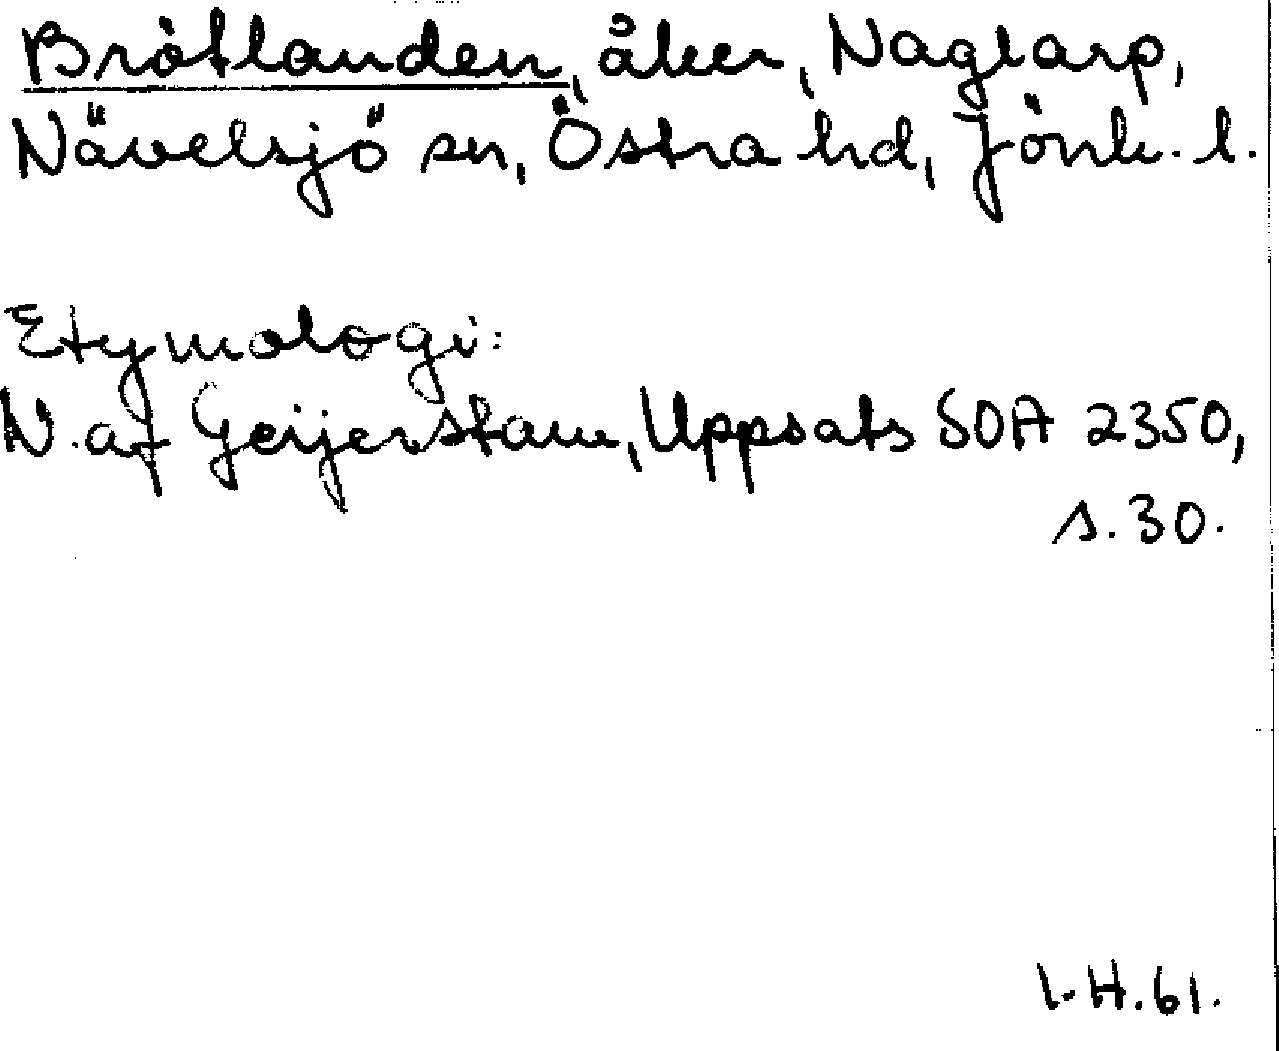 Bråtlanden, åker, Naglarp,
Nävelsjö sn, Östra hd, Jönk. l.
Etymologi:
N. af Geijerstam, Uppsats SOA 2350,
s. 30.
I.H. 61.